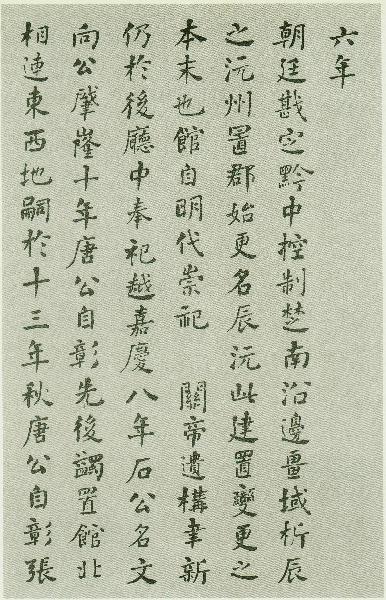 六年
朝廷戡定黔中控制楚南沿邊畺域析辰
之沅州置郡始更名辰沅此建置變更之
本末也館自明代崇祀 關帝遺構聿新
仍於後廳中奉祀越嘉慶八年石公名文
向公肇十年唐公自彰先後蠲置館北
相連東西地嗣於十三年秋唐公自彰張